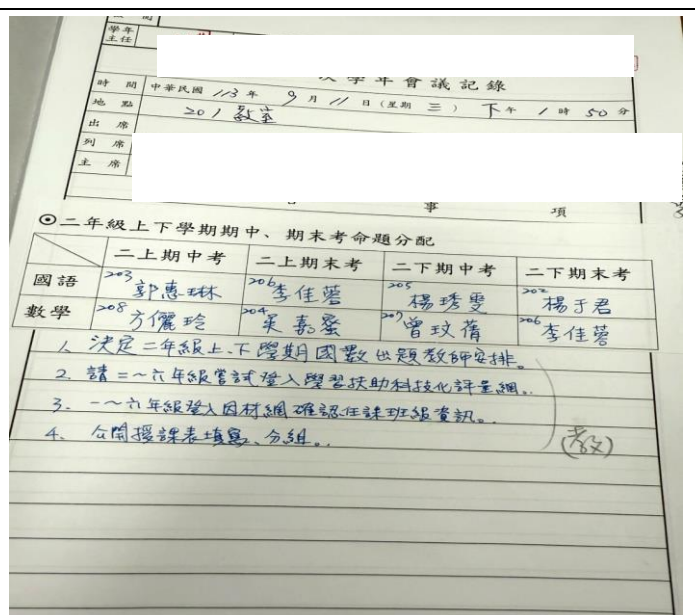 學年
主任
次學年會議記錄
時 間 中華民國 113 年 9 月 11 日(星期 三 ) 下午 1 時 50 分
地 點 201教室
出 席
列 席
主 席
事 項
⊙二年級上下學期期中、期末考命題分配
二上期中考 二上期末考 二下期中考 二下期末考
國語 203 郭惠琳 206 李佳蓉 205 楊琇雯 202 楊于君
數學 208 方儷玲 204 吳嘉蜜 207 曾玟蒨 206 李佳蓉
1、決定二年級上、下學期國數出題教師安排。
2、請二~六年級嘗試登入學習扶助科技化評量網。
3、一~六年級登入因材網確認任課班級資訊。
4、公開授課表填寫、分組。